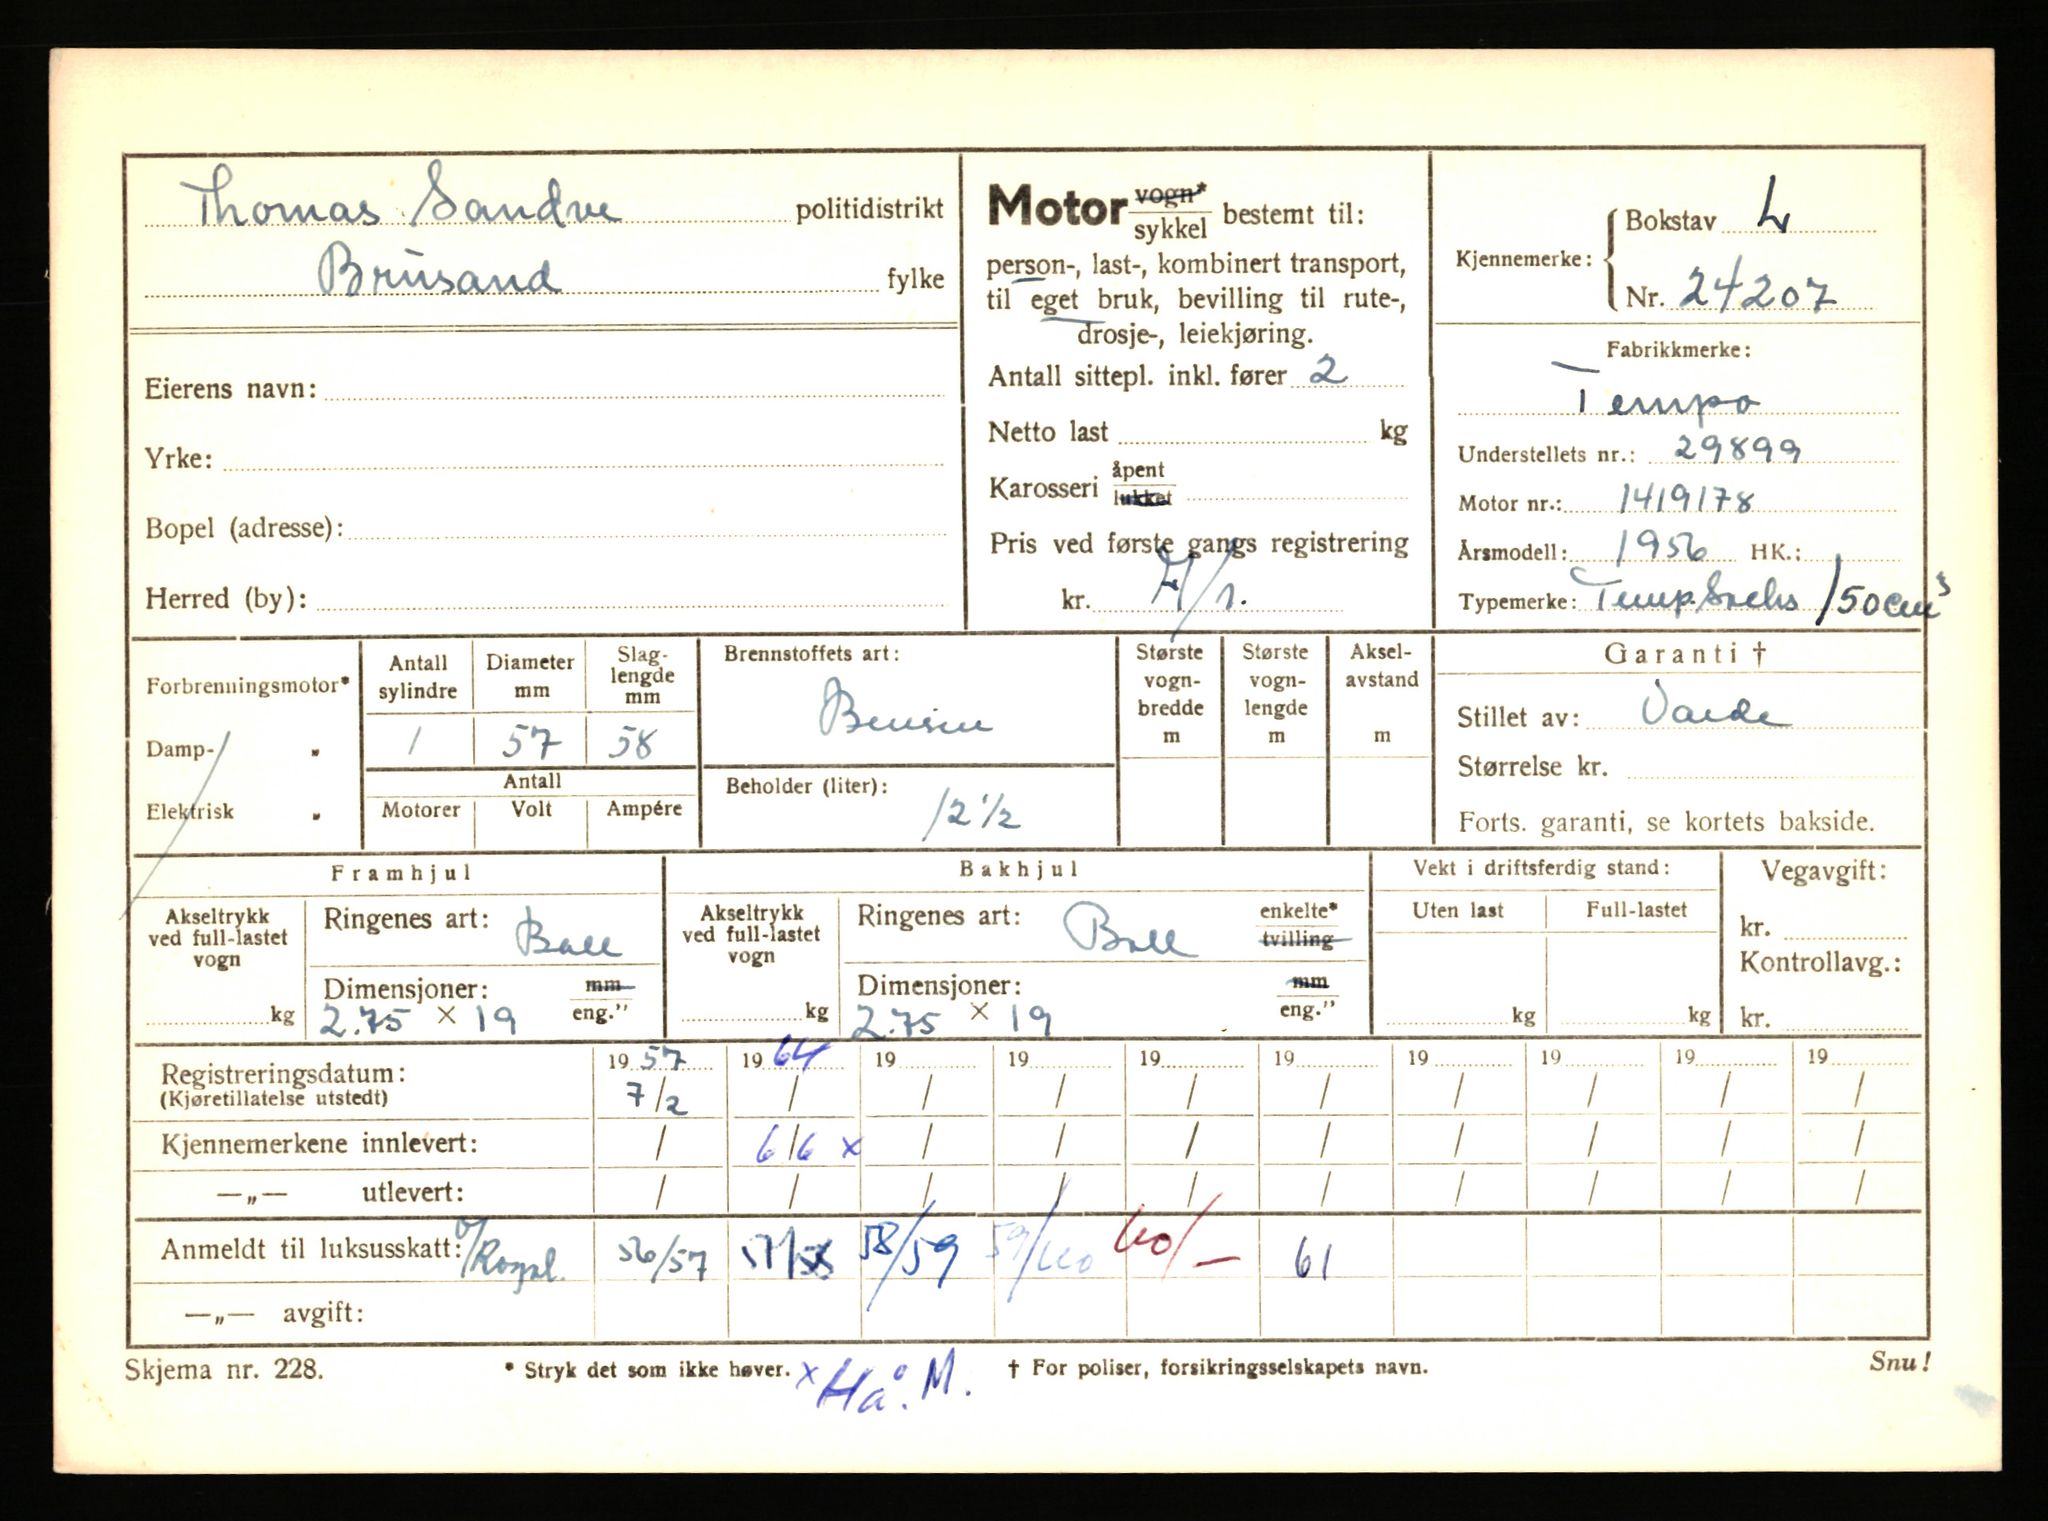 Thomas Sandve politidistrikt
Brusand fylke
Eierens navn:
Yrke:
Bopel (adresse):
Herred (by):
Motor vogn* / sykkel bestemt til:
person-, last-, kombinert transport,
til eget bruk, bevilling til rute-,
drosje-, leiekjøring.
Antall sittepl. inkl. fører 2
Netto last kg
Karosseri åpent / lukket
Pris ved første gangs registrering
kr.
Kjennemerke: Bokstav L
Nr. 24207
Fabrikkmerke:
Tempo
Understellets nr.: 29899
Motor nr.: 1419178
Årsmodell: 1956 HK.:
Typemerke: Temp. Sachs 150 cm³
Forbrenningsmotor*
Damp- „
Elektrisk „
Antall sylindre
1
Diameter mm
57
Slag-lengde mm
58
Antall
Motorer Volt Ampére
Brennstoffets art:
Bensin
Beholder (liter):
12 1/2
Største vogn-bredde m
Største vogn-lengde m
Aksel-avstand m
Garanti †
Stillet av: Varde
Størrelse kr.
Forts. garanti, se kortets bakside.
Framhjul
Akseltrykk ved full-lastet vogn
kg
Ringenes art: Ball
Dimensjoner: mm / eng.”
2.75 × 19
Bakhjul
Akseltrykk ved full-lastet vogn
kg
Ringenes art: Ball enkelte* / tvilling
Dimensjoner: mm / eng.”
2.75 × 19
Vekt i driftsferdig stand:
Uten last Full-lastet
kg kg
Vegavgift:
kr.
Kontrollavg.:
kr.
19 57 19 64 19 19 19 19 19 19 19 19
Registreringsdatum: 7/2 / / / / / / / / /
(Kjøretillatelse utstedt)
Kjennemerkene innlevert: / 6/6 x / / / / / / / /
—„— utlevert: / / / / / / / / / /
Anmeldt til luksusskatt: 56/57 57/58 58/59 59/60 60/— 61
—„— avgift:
Skjema nr. 228.
* Stryk det som ikke høver.
x Hå. M.
† For poliser, forsikringsselskapets navn.
Snu!